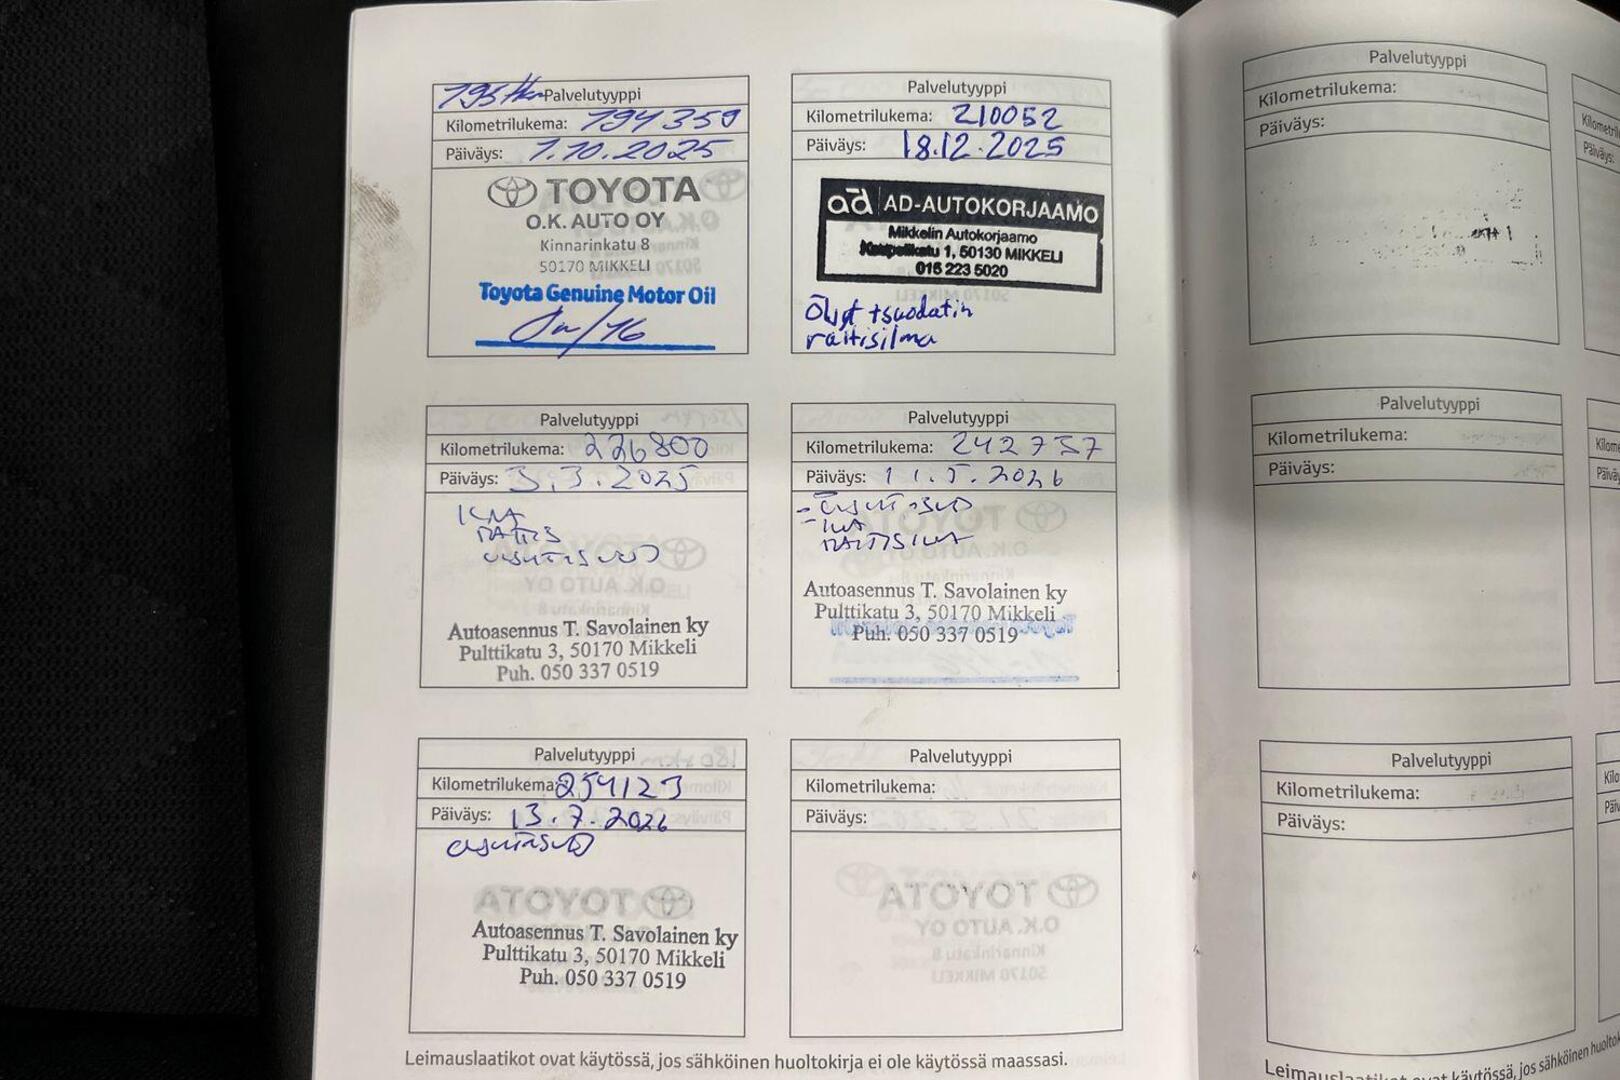 195 tkm Palvelutyyppi
Kilometrilukema: 194359
Päiväys: 1.10.2025
TOYOTA
O.K. AUTO OY
Kinnarinkatu 8
50170 MIKKELI
Toyota Genuine Motor Oil
Palvelutyyppi
Kilometrilukema: 210052
Päiväys: 18.12.2025
ad AD-AUTOKORJAAMO
Mikkelin Autokorjaamo
1, 50130 MIKKELI
015 223 5020
Öljyt +suodatin
raitisilma
Palvelutyyppi
Kilometrilukema: 226800
Päiväys: 3.3.2025
ILMA
RAITIS
Autoasennus T. Savolainen ky
Pulttikatu 3, 50170 Mikkeli
Puh. 050 337 0519
Palvelutyyppi
Kilometrilukema: 242737
Päiväys: 11.5.2026
RAITISILMA
Autoasennus T. Savolainen ky
Pulttikatu 3, 50170 Mikkeli
Puh. 050 337 0519
Palvelutyyppi
Kilometrilukema: 254123
Päiväys: 13.7.2026
Autoasennus T. Savolainen ky
Pulttikatu 3, 50170 Mikkeli
Puh. 050 337 0519
Palvelutyyppi
Kilometrilukema:
Päiväys:
Leimauslaatikot ovat käytössä, jos sähköinen huoltokirja ei ole käytössä maassasi.
Palvelutyyppi
Kilometrilukema:
Päiväys:
Palvelutyyppi
Kilometrilukema:
Päiväys:
Palvelutyyppi
Kilometrilukema:
Päiväys:
Leimauslaatikot ovat käytössä, jos sähköinen